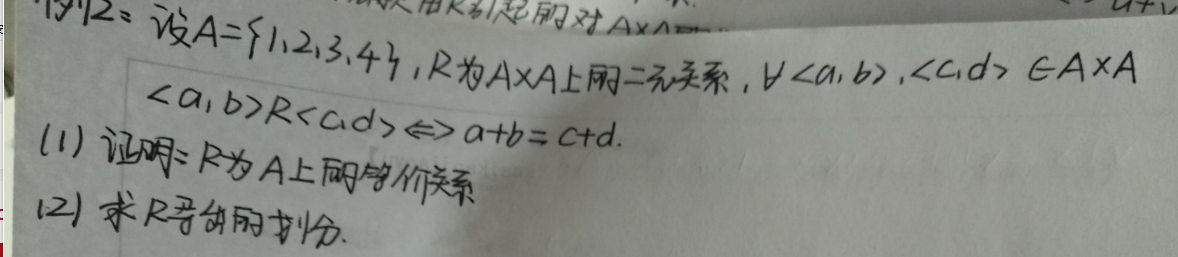 引起的对A×A
例12: 设A={1,2,3,4},R为A×A上的二元关系,∀<a,b>,<c,d>∈A×A
<a,b>R<c,d>⇔a+b=c+d.
(1) 证明: R为A上的等价关系
(2) 求R导出的划分.